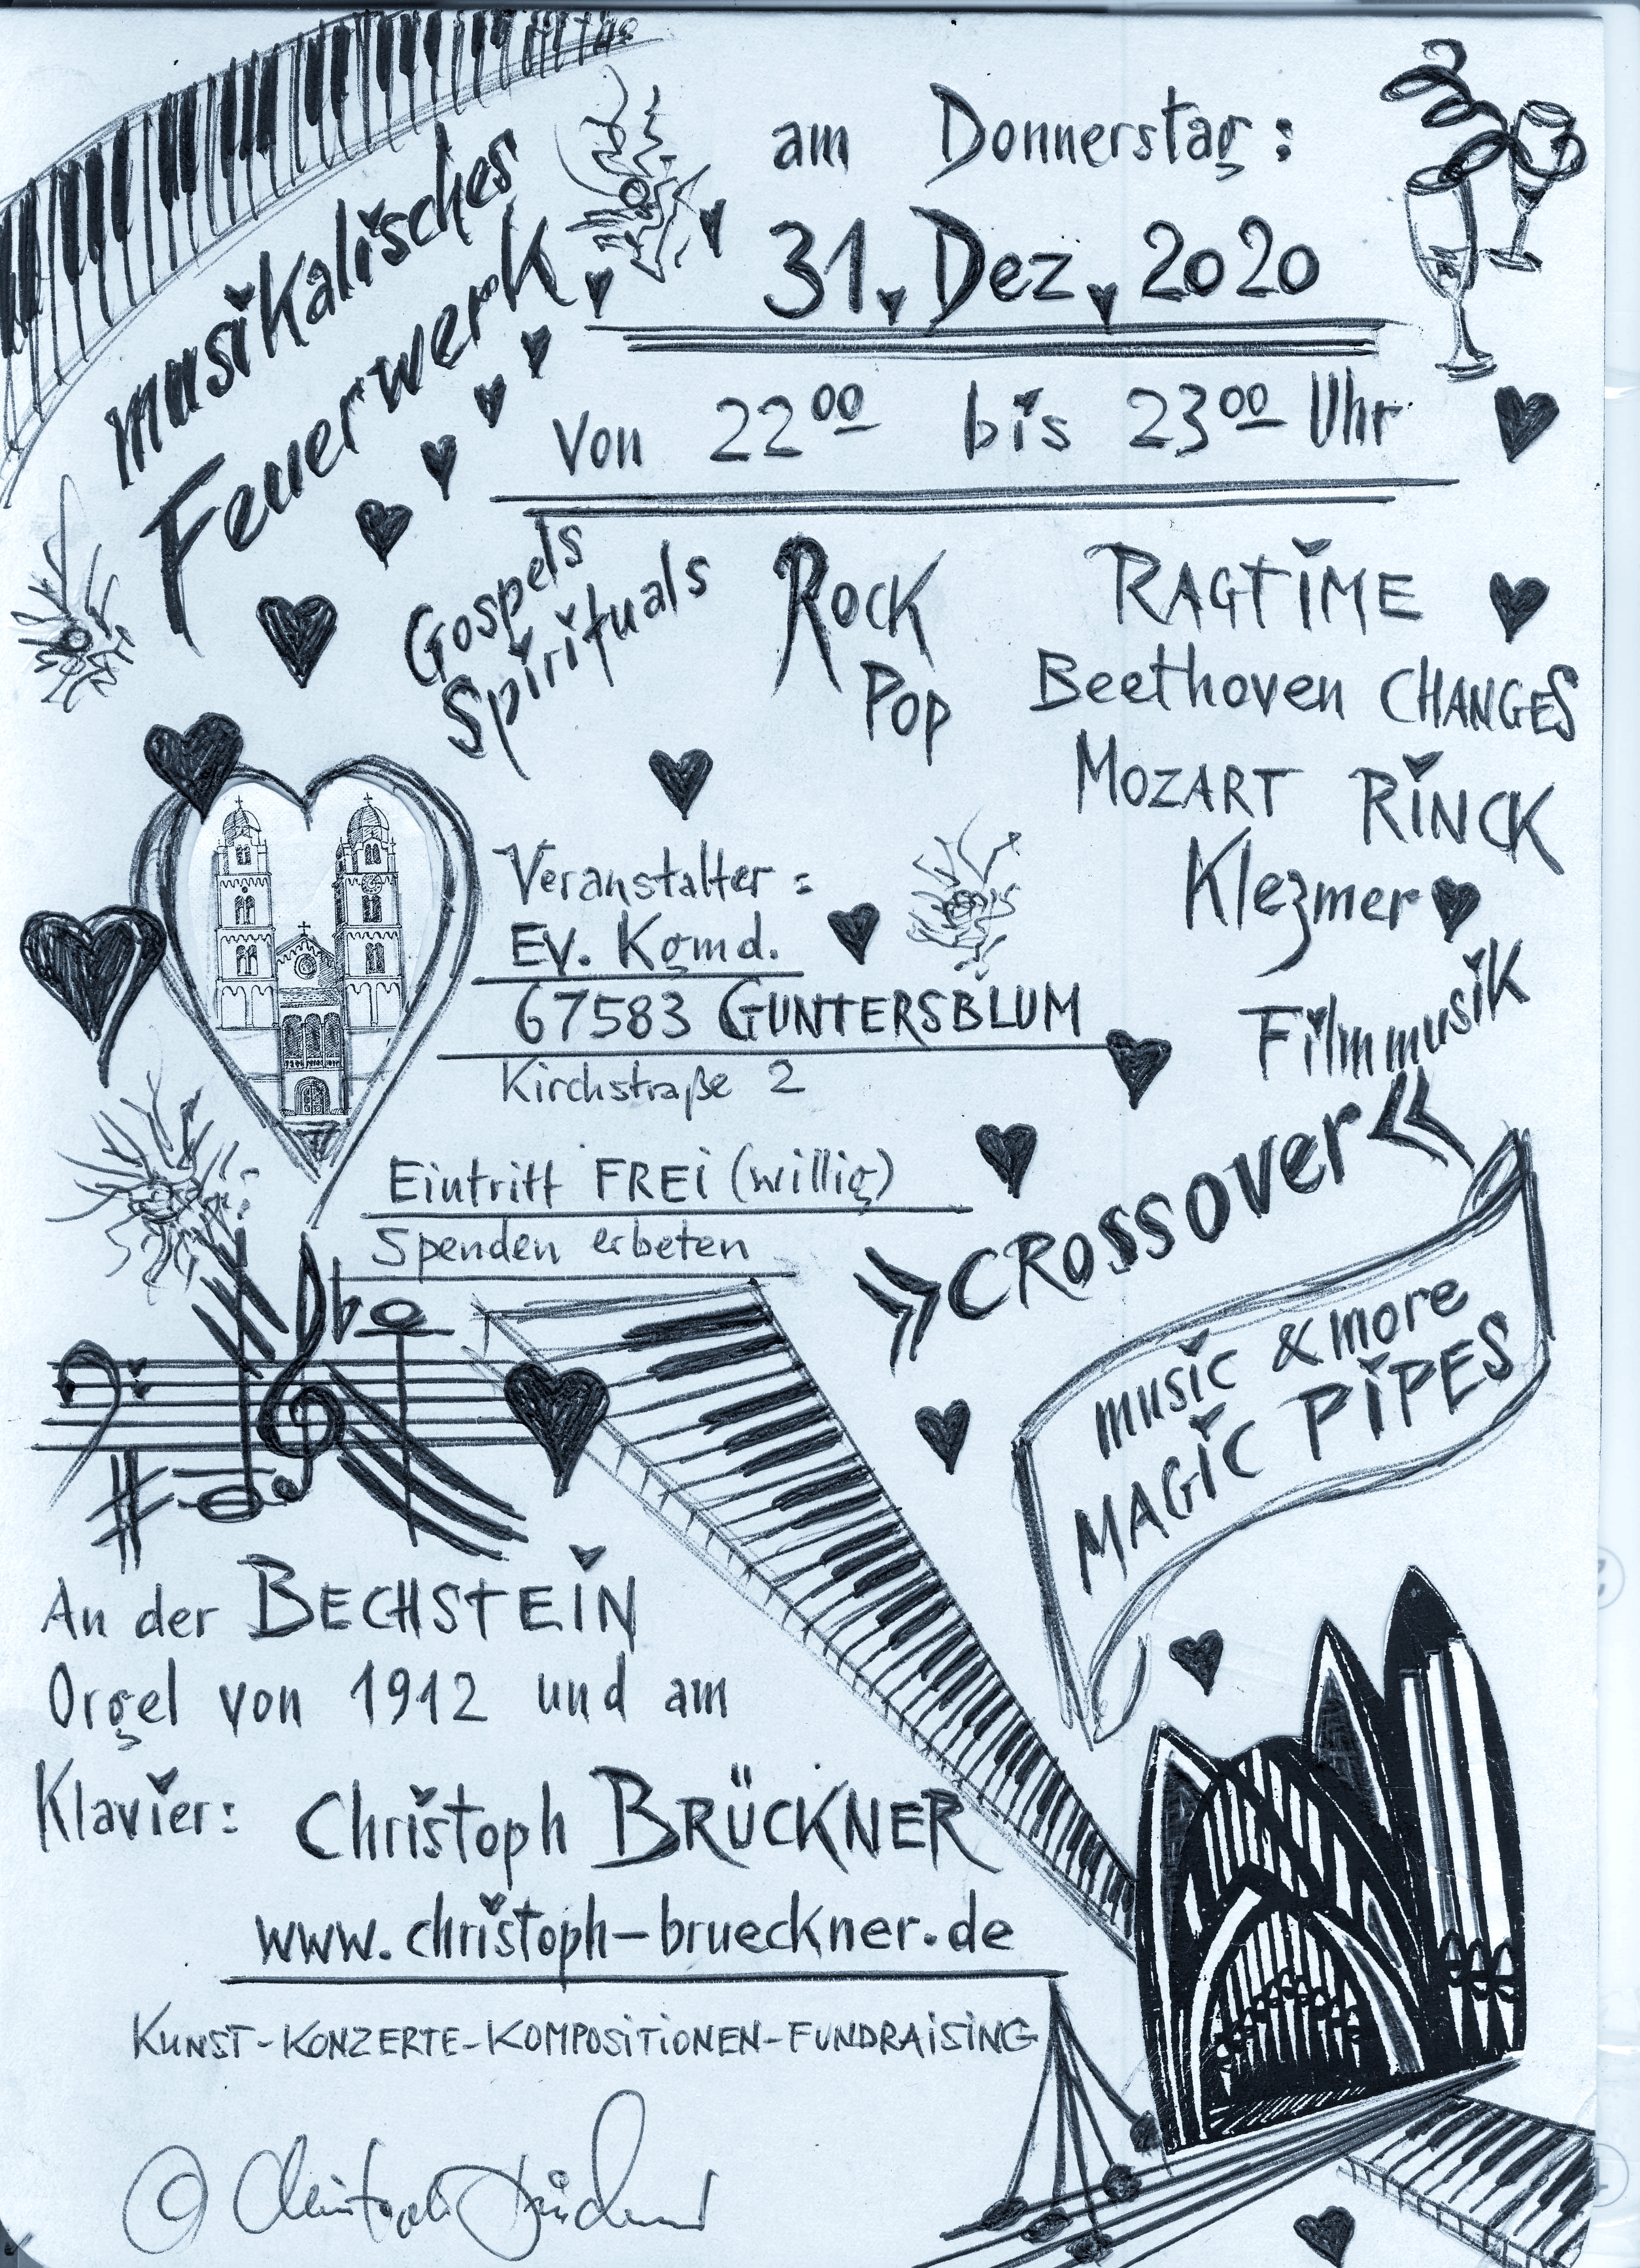 musikalisches
Feuerwerk
am Donnerstag:
31. Dez. 2020
von 22⁰⁰ bis 23⁰⁰ Uhr
Gospels
Spirituals
ROCK
POP
RAGTIME
Beethoven CHANGES
MOZART RINCK
Klezmer
Filmmusik
»CROSSOVER«
Veranstalter:
Ev. Kgmd.
67583 GUNTERSBLUM
Kirchstraße 2
Eintritt FREi (willig)
Spenden erbeten
music & more
MAGIC PIPES
An der BECHSTEIN
Orgel von 1912 und am
Klavier: Christoph BRÜCKNER
www.christoph-brueckner.de
KUNST-KONZERTE-KOMPOSITIONEN-FUNDRAISING
© Christoph Brückner